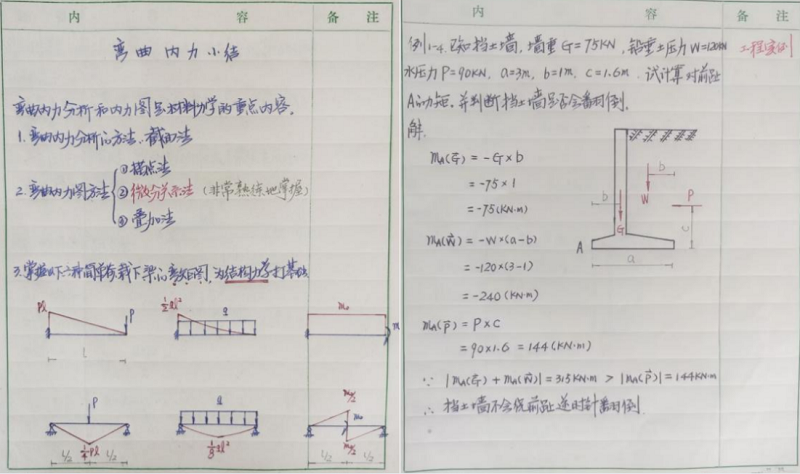 内 容 备 注
弯曲内力小结
弯曲内力分析和内力图是材料力学的重点内容。
1. 弯曲内力分析的方法: 截面法
①描点法
2. 弯曲内力图方法 ②微分关系法 (非常熟练地掌握)
③叠加法
3. 掌握以下六种简单荷载下梁的弯矩图, 为结构力学打基础
Pl P l
½ql² q
m₀ m
P l/2 ¼Pl l/2
q ⅛ql²
m/2 m₀ m/2 l/2 l/2
内 容 备 注
例1-4. 已知挡土墙, 墙重 G=75KN, 铅垂土压力 W=120KN 工程实例
水压力 P=90KN, a=3m, b=1m, c=1.6m. 试计算对前趾
A的力矩, 并判断挡土墙是否会翻倒。
解:
mA(G) = -G×b
= -75×1
= -75(KN·m)
mA(W) = -W×(a-b)
= -120×(3-1)
= -240(KN·m)
mA(P) = P×c
= 90×1.6 = 144(KN·m)
b
W
P
b
G
c
A
a
∵ |mA(G)+mA(W)| = 315KN·m > |mA(P)| = 144KN·m
∴ 挡土墙不会绕前趾逆时针翻倒.